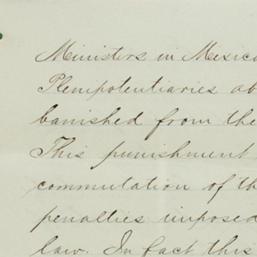 Ministers in Mexico
Plenipotentiaries ab
banished from the
This punishment
commutation of th
penalties imposed
law. In fact this